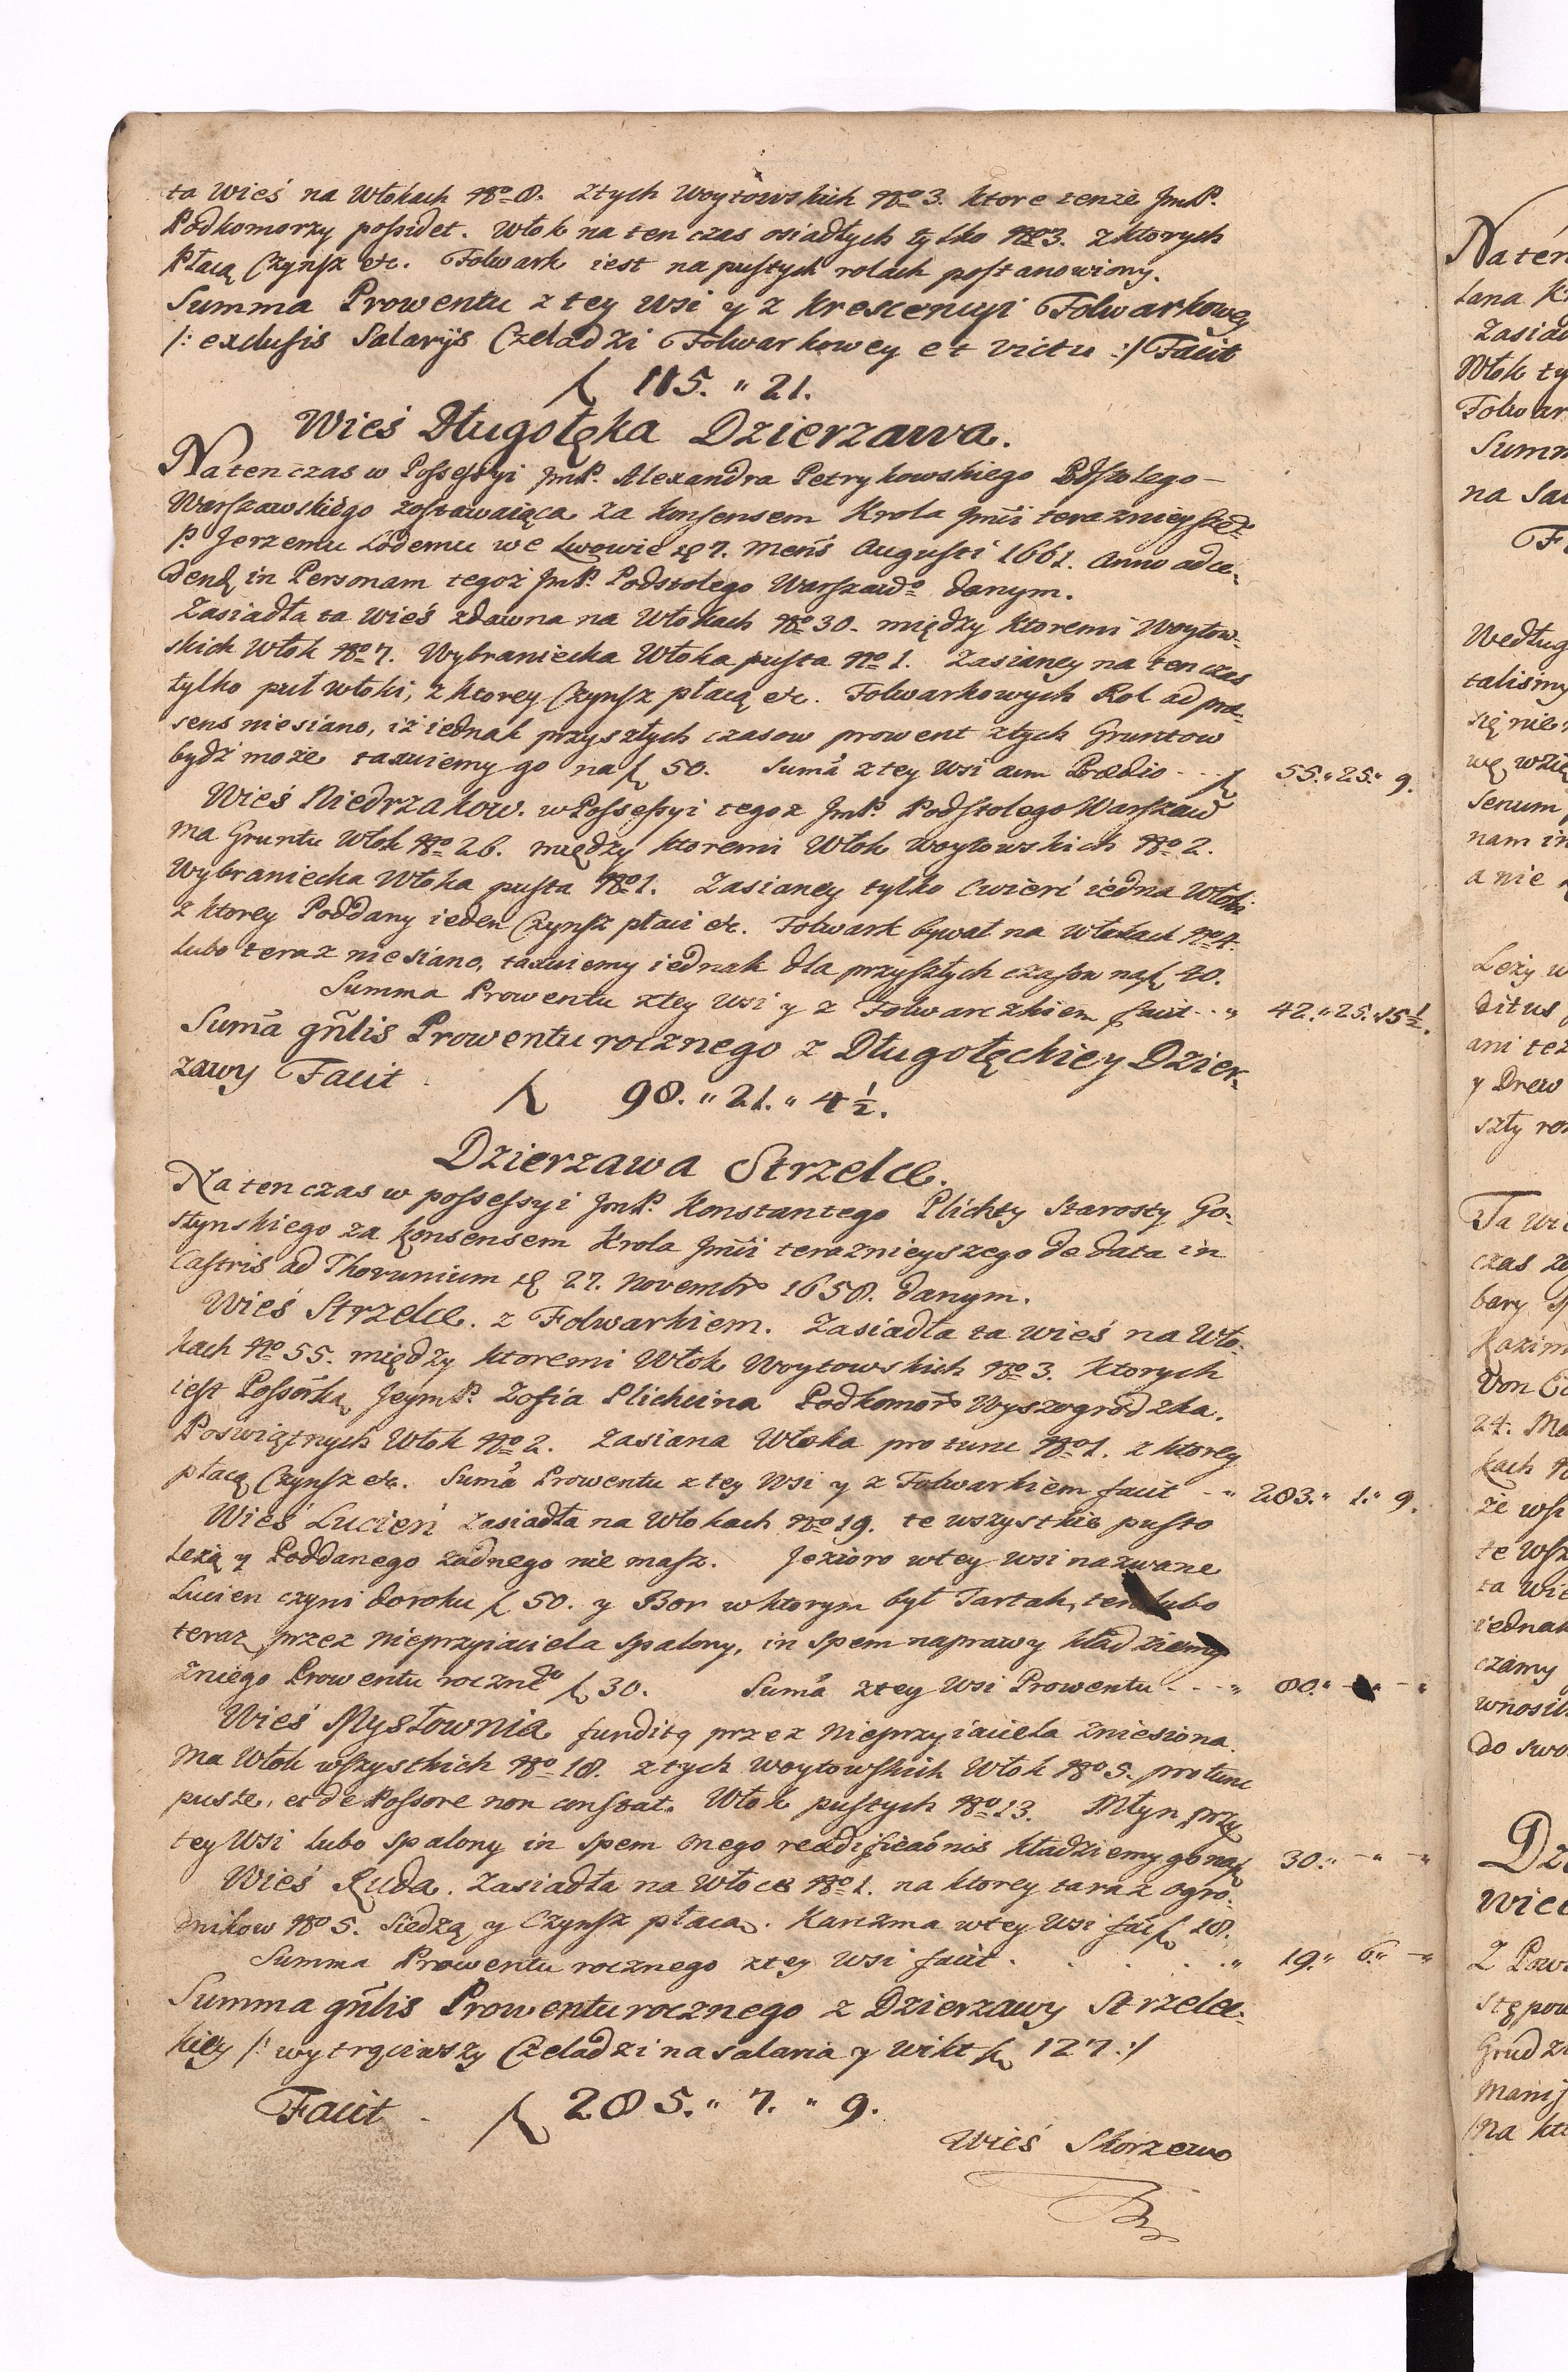 ta Wieś na Włokach No 8. z tych Woytowskich No 3. ktore tenże JmP.
Podkomorzy possidet. Włok na ten czas osiadłych tylko No 3. z ktorych
Płacą Czynsz etc. Folwark iest na pustych rolach postanowiony.
Summa Prowentu z tey Wsi y z Krescencyi Folwarkowey
/: exclusis Salarijs Czeladzi Folwarkowey et victu :/ Facit
f 115. " 21.
Wieś Długołęka Dzierzawa.
Na ten czas w Possessyi JmP. Alexandra Petrykowskiego Podstolego
Warszawskiego zostawaiąca za konsensem Krola Jmći teraznieyszego
P. Jerzemu we Lwowie 7. Mens Augusti 1661. Anno ad ce-
dend in Personam tegoż JmP. Podstolego Warszawo danym.
Zasiadła ta Wieś zdawna na Włokach No 30. między ktoremi Woytow-
skich Włok No 7. Wybraniecka Włoka pusta No 1. Zasianey na ten czas
tylko puł włoki, z ktorey Czynsz płacą etc. Folwarkowych Rol ad prae-
sens niesiano, iż iednak przyszłych czasow prowent z tych Gruntow
bydź może taxuiemy go na f 50. Suma z tey Wsi cum Praedio - - f 55." 25." 9.
Wieś Niedrzakow. w Possessyi tegoz JmP. Podstolego Warszaw
ma Gruntu Włok No 26. między ktoremi Włok Woytowskich No 2.
Wybraniecka Włoka pusta No 1. Zasianey tylko cwierć iedna Włoki
z ktorey Poddany ieden Czynsz płaci etc. Folwark bywał na włokach No 4.
lubo teraz niesiano, taxuiemy iednak dla przyszłych czasow na f 40.
Summa Prowentu z tey Wsi y z Folwarczkiem facit - - " 42." 25." 15½.
Suma gnlis Prowentu rocznego z Długołęckiey Dzier-
zawy Facit
f 98. " 21. " 4½.
Dzierzawa Strzelce.
Na ten czas w possessyi JmP. Konstantego Plichty Starosty Go-
stynskiego za konsensem Krola Jmći teraznieyszego de data in
Castris ad Thorunium 27. Novembr 1658. danym.
Wieś Strzelce. z Folwarkiem. Zasiadła ta wieś na Wło-
kach No 55. między ktoremi Włok Woytowskich No 3. ktorych
iest Possorką JeymP. Zofia Plichcina Podkomor Wyszogrodzka.
Poswiątnych Włok No 2. Zasiana Włoka pro tunc No 1. z ktorey
płacą Czynsz etc. Suma Prowentu z tey Wsi y z Folwarkiem facit - " 283." 1." 9.
Wieś Lucień zasiadła na Włokach No 19. te wszystkie pusto
leżą y Poddanego zadnego nie masz. Jezioro w tey wsi nazwane
Lucien czyni do roku f 50. y Bor w ktorym był Tartak, ten lubo
teraz przez nieprzyiaciela spalony, in spem naprawy kładziemy
z niego Prowentu roczneo f 30. Suma z tey Wsi Prowentu - - - " 80." - " - "
Wieś Mysłownia funditq przez nieprzyiaciela zniesiona.
ma Włok wszystkich No 18. z tych Woytowskich Włok No 5. pro tunc
puste, et de Possore non constat. Włok pustych No 13. Młyn przy
tey Wsi lubo spalony in spem onego reædificaonis kładziemy go na f 30." - " - "
Wieś Ruda. Zasiadła na Włoce No 1. na ktorey taraz ogro-
dnikow No 5. siedzą y Czynsz płacą. Karczma w tey Wsi faci f 18.
Summa Prowentu rocznego z tey Wsi facit . . . . . " 19." 6." - "
Summa gnlis Prowentu rocznego z Dzierzawy Strzelec-
kiey /: wytrąciwszy Czeladzi na salaria y wikt f 127 :/
Facit f 285. " 7. " 9.
Wieś Skorzewo